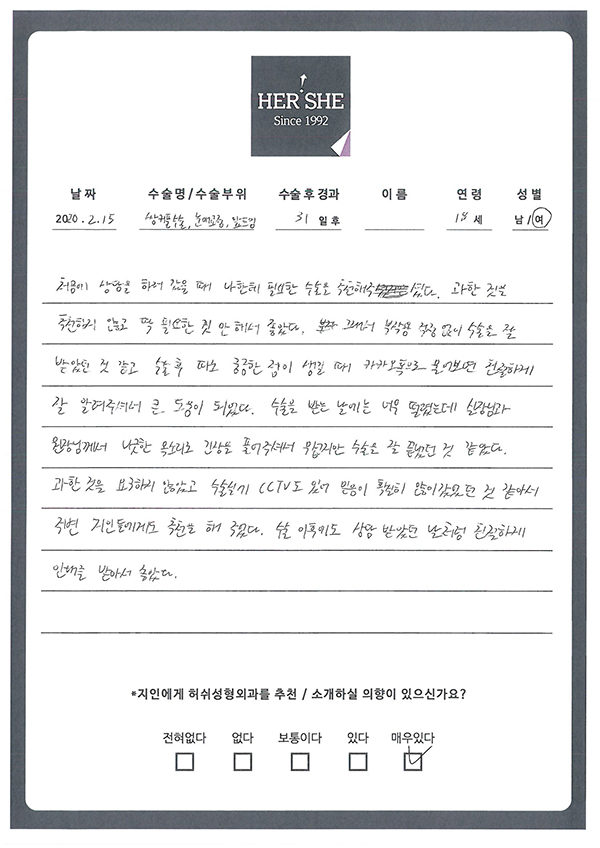 HER SHE
Since 1992
날 짜 수술명/수술부위 수술 후 경과 이 름 연 령 성 별
2020.2.15 쌍커풀수술, 눈매교정, 앞트임 31 일 후 18 세 남/여
처음에 상담을 하러 갔을 때 나한테 필요한 수술을 추천해주셨다. 과한 것을
추천하지 않고 딱 필요한 것만 해서 좋았다. 그래서 부작용 걱정 없이 수술을 잘
받았던 것 같고 수술 후 따로 궁금한 점이 생길 때 카카오톡으로 물어보면 친절하게
잘 알려주셔서 큰 도움이 되었다. 수술을 받는 날에는 너무 떨렸는데 실장님과
원장님께서 나긋한 목소리로 긴장을 풀어주셔서 수술은 잘 끝났던 것 같았다.
과한 것을 요구하지 않았고 수술실기 CCTV도 있어 믿음이 확실히 많이 갔었던 것 같아서
주변 지인들에게도 추천을 해 주었다. 수술 이후에도 상담 받았던 날처럼 친절하게
안내를 받아서 좋았다.
*지인에게 허쉬성형외과를 추천 / 소개하실 의향이 있으신가요?
전혀없다 없다 보통이다 있다 매우있다